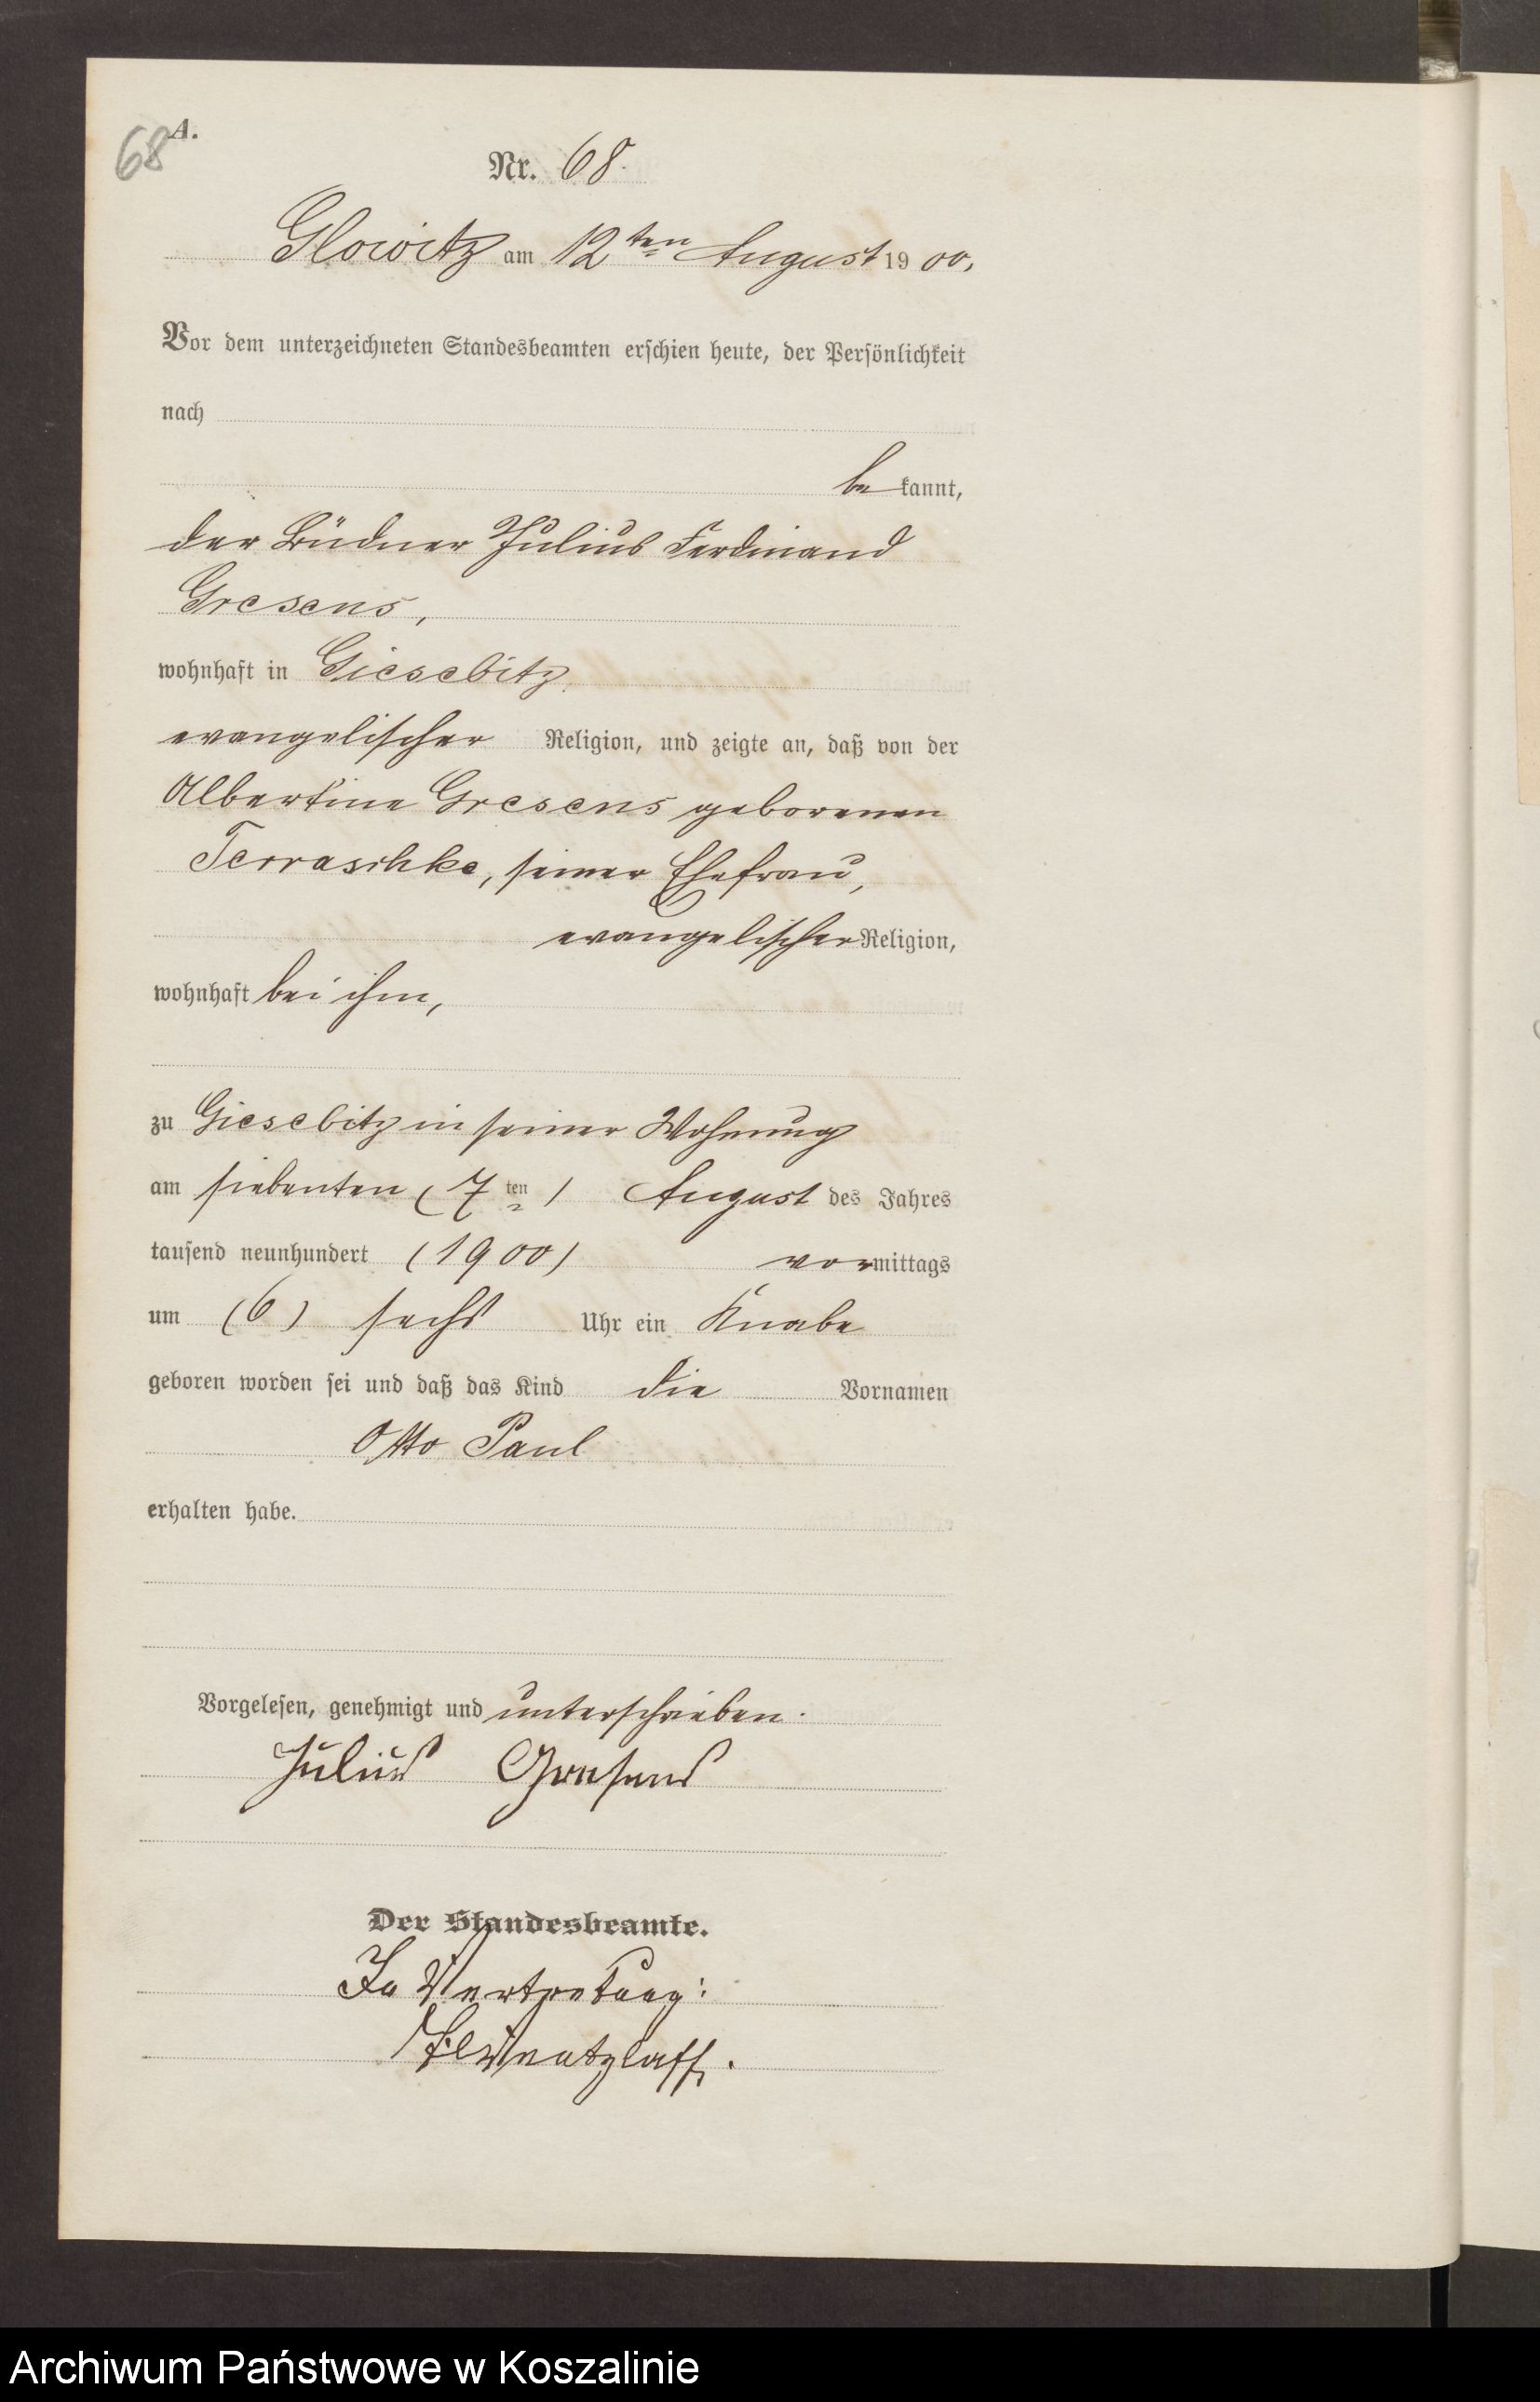 68
A.
Nr. 68.
Glowitz am 12ten August 1900.
Vor dem unterzeichneten Standesbeamten erschien heute, der Persönlichkeit
nach
be kannt,
der Büdner Julius Ferdinand
Gresens,
wohnhaft in Giesebitz,
evangelischer Religion, und zeigte an, daß von der
Albertine Gresens geborenen
Terraschke, seiner Ehefrau,
evangelischer Religion,
wohnhaft bei ihm,
zu Giesebitz in seiner Wohnung
am siebenten (7ten) August des Jahres
tausend neunhundert (1900) vormittags
um (6) sechs Uhr ein Knabe
geboren worden sei und daß das Kind die Vornamen
Otto Paul
erhalten habe.
Vorgelesen, genehmigt und unterschrieben.
Julius Gresens
Der Standesbeamte.
In Vertretung:
Wentzlaff.
Archiwum Państwowe w Koszalinie